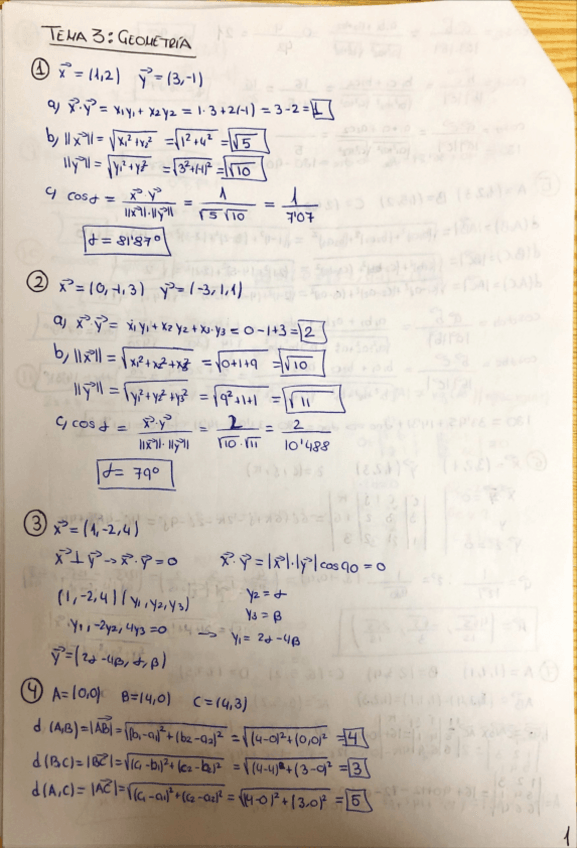 TEMA 3: GEOMETRÍA
① x⃗ = (1,2) y⃗ = (3,-1)
a) x⃗·y⃗ = x₁y₁ + x₂y₂ = 1·3+2(-1) = 3-2 = 1
b) ||x⃗|| = √(x₁²+x₂²) = √(1²+4²) = √5
||y⃗|| = √(y₁²+y₂²) = √(3²+(-1)²) = √10
c) cos α = x⃗·y⃗ / ||x⃗||·||y⃗|| = 1 / √5 √10 = 1 / 7'07
α = 81'87º
② x⃗ = (0,-1,3) y⃗ = (-3,1,1)
a) x⃗·y⃗ = x₁y₁ + x₂y₂ + x₃y₃ = 0-1+3 = 2
b) ||x⃗|| = √(x₁²+x₂²+x₃²) = √(0+1+9) = √10
||y⃗|| = √(y₁²+y₂²+y₃²) = √(9²+1+1) = √11
c) cos α = x⃗·y⃗ / ||x⃗||·||y⃗|| = 2 / √10·√11 = 2 / 10'488
α = 79º
③ x⃗ = (1,-2,4)
x⃗ ⊥ y⃗ → x⃗·y⃗ = 0 x⃗·y⃗ = |x⃗|·|y⃗| cos 90 = 0
(1,-2,4)(y₁,y₂,y₃) y₂ = α
y₃ = β
y₁,-2y₂,4y₃ = 0 → y₁ = 2α-4β
y⃗ = (2α-4β, α, β)
④ A = (0,0) B = (4,0) C = (4,3)
d(A,B) = |AB⃗| = √((b₁-a₁)²+(b₂-a₂)²) = √((4-0)²+(0,0)²) = 4
d(B,C) = |BC⃗| = √((c₁-b₁)²+(c₂-b₂)²) = √((4-4)²+(3-0)²) = 3
d(A,C) = |AC⃗| = √((c₁-a₁)²+(c₂-a₂)²) = √((4-0)²+(3,0)²) = 5
1